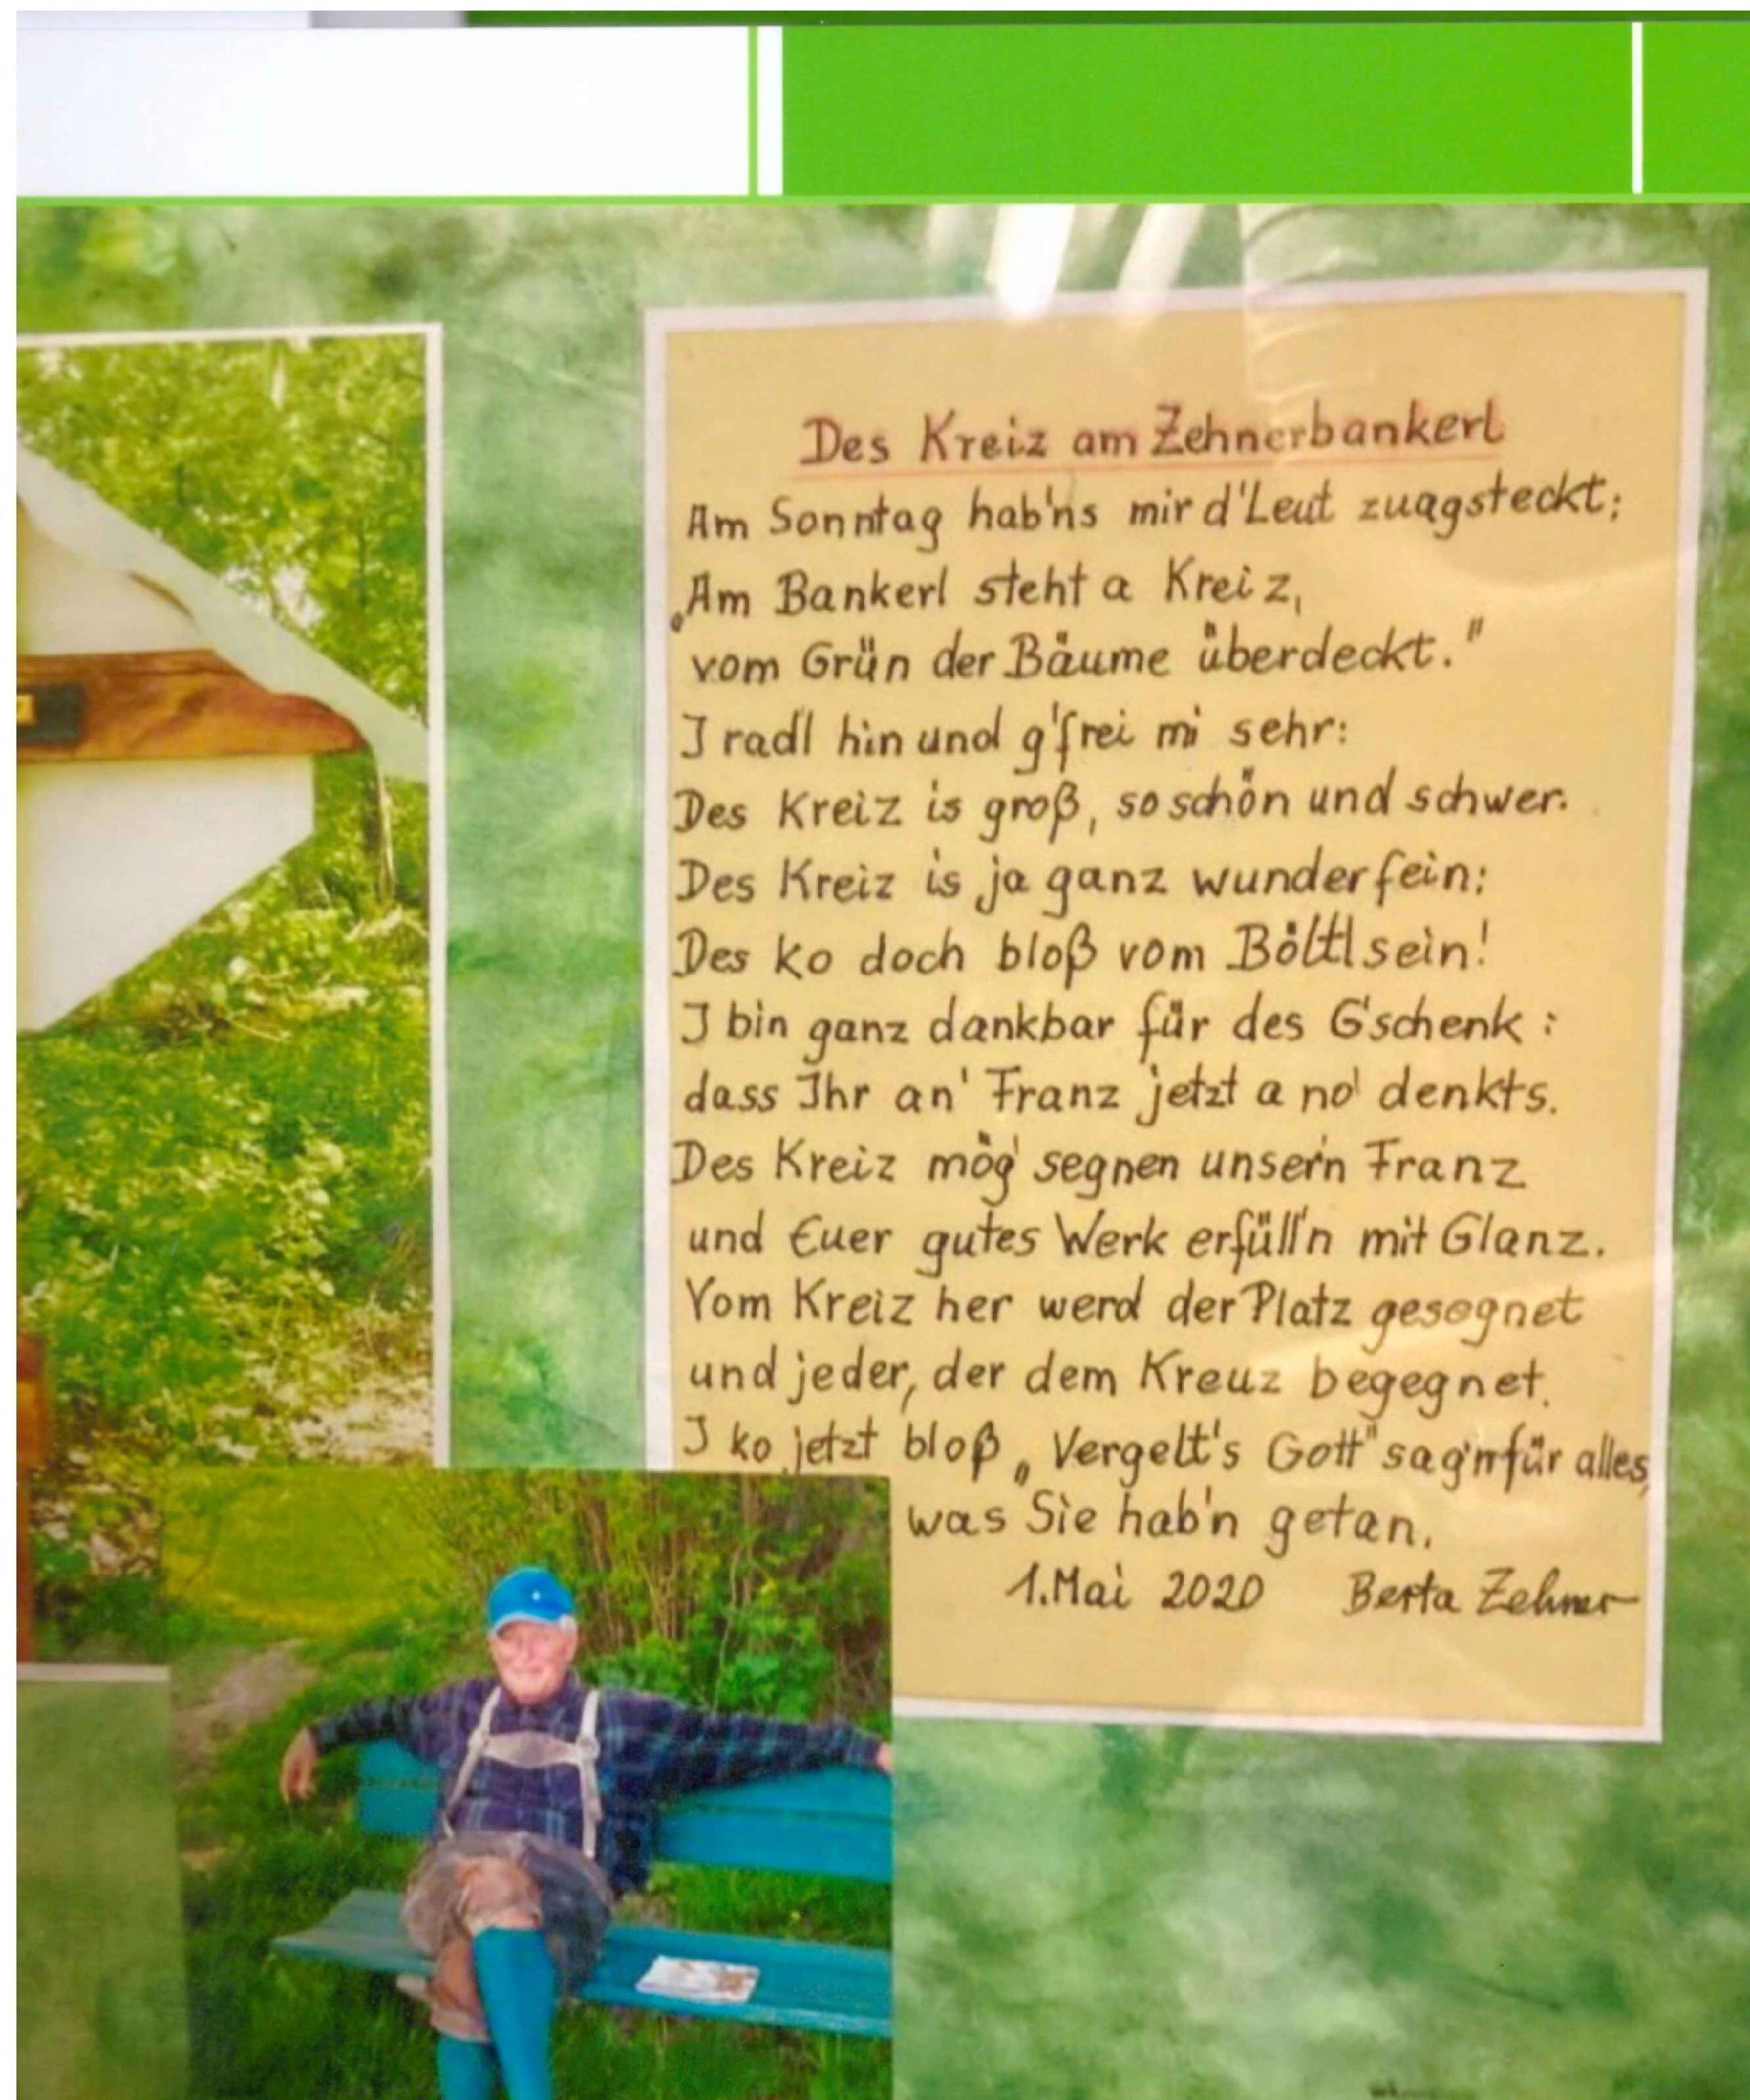 Des Kreiz am Zehnerbankerl
Am Sonntag hab'ns mir d'Leut zuagsteckt:
„Am Bankerl steht a Kreiz,
vom Grün der Bäume überdeckt."
I radl hin und g'frei mi sehr:
Des Kreiz is groß, so schön und schwer.
Des Kreiz is ja ganz wunderfein:
Des ko doch bloß vom Böltl sein!
I bin ganz dankbar für des G'schenk:
dass Ihr an' Franz jetzt a no' denkts.
Des Kreiz mög' segnen unser'n Franz
und Euer gutes Werk erfüll'n mit Glanz.
Vom Kreiz her werd der Platz gesegnet
und jeder, der dem Kreuz begegnet.
I ko jetzt bloß „Vergelt's Gott" sag'n für alles,
was Sie hab'n getan.
1. Mai 2020 Berta Zehner